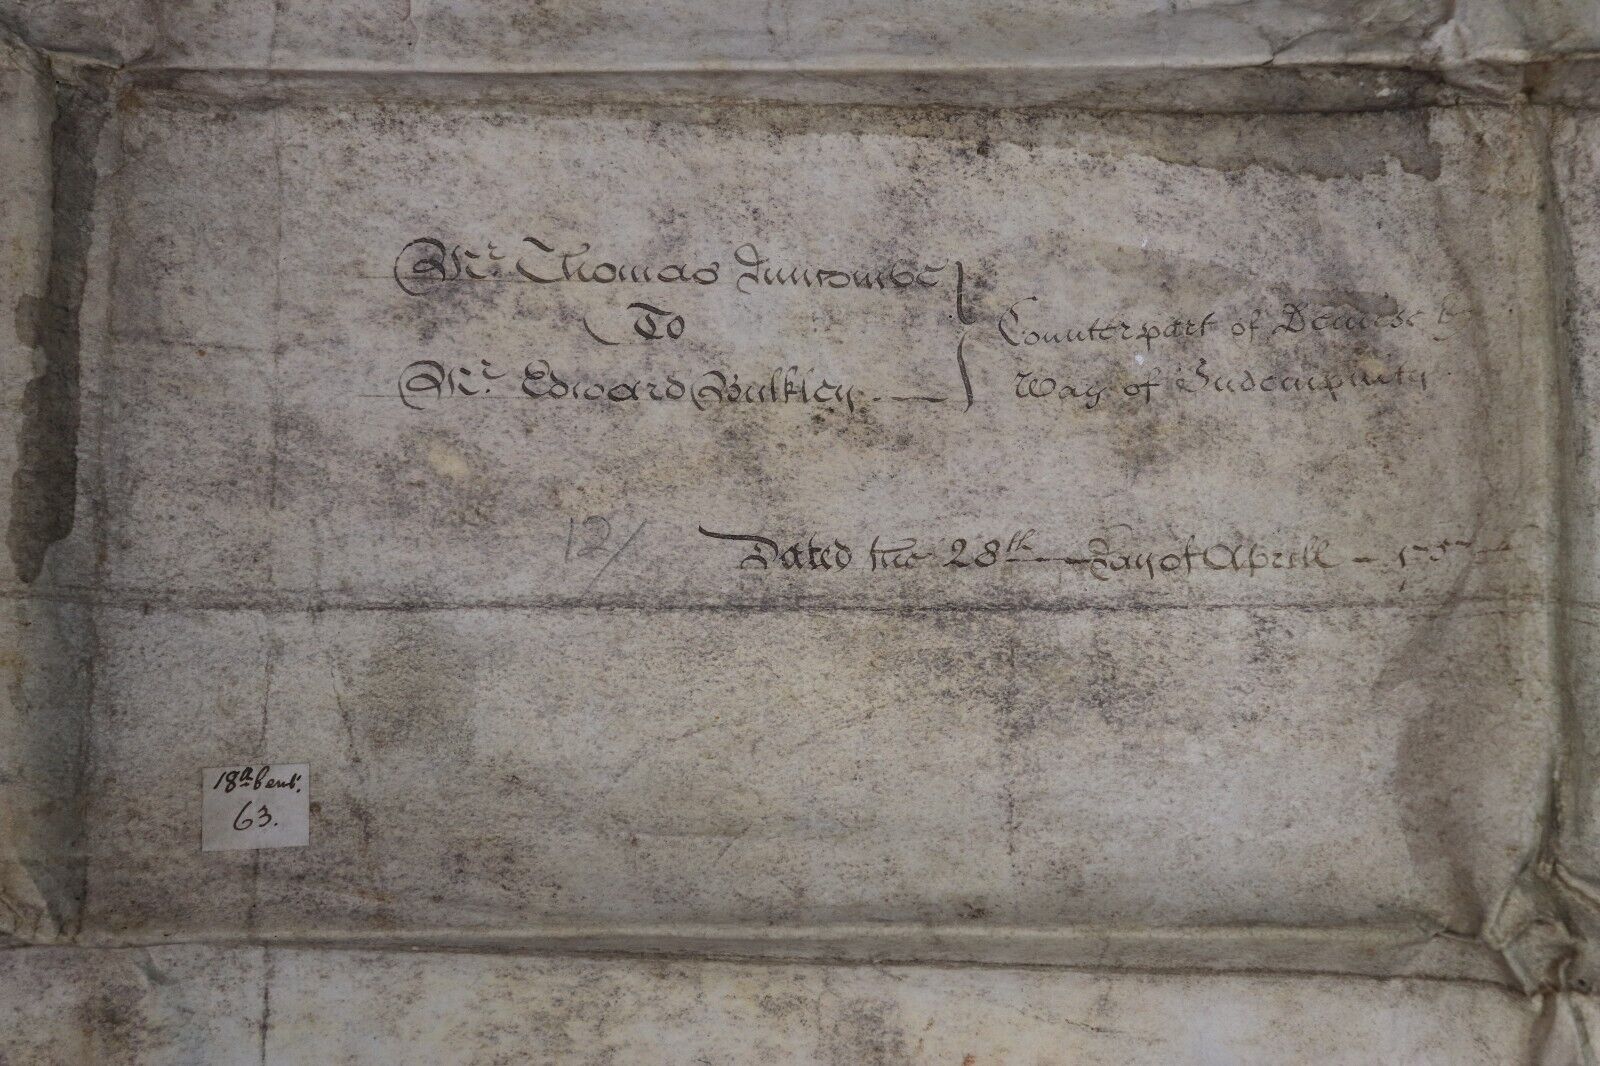 Mr. Thomas Duncombe
To
Mr. Edward Bulkley
Counterpart of Demise by
Way of Indempnity
12/
Dated the 28th Day of Aprill
18th Cent.
63.